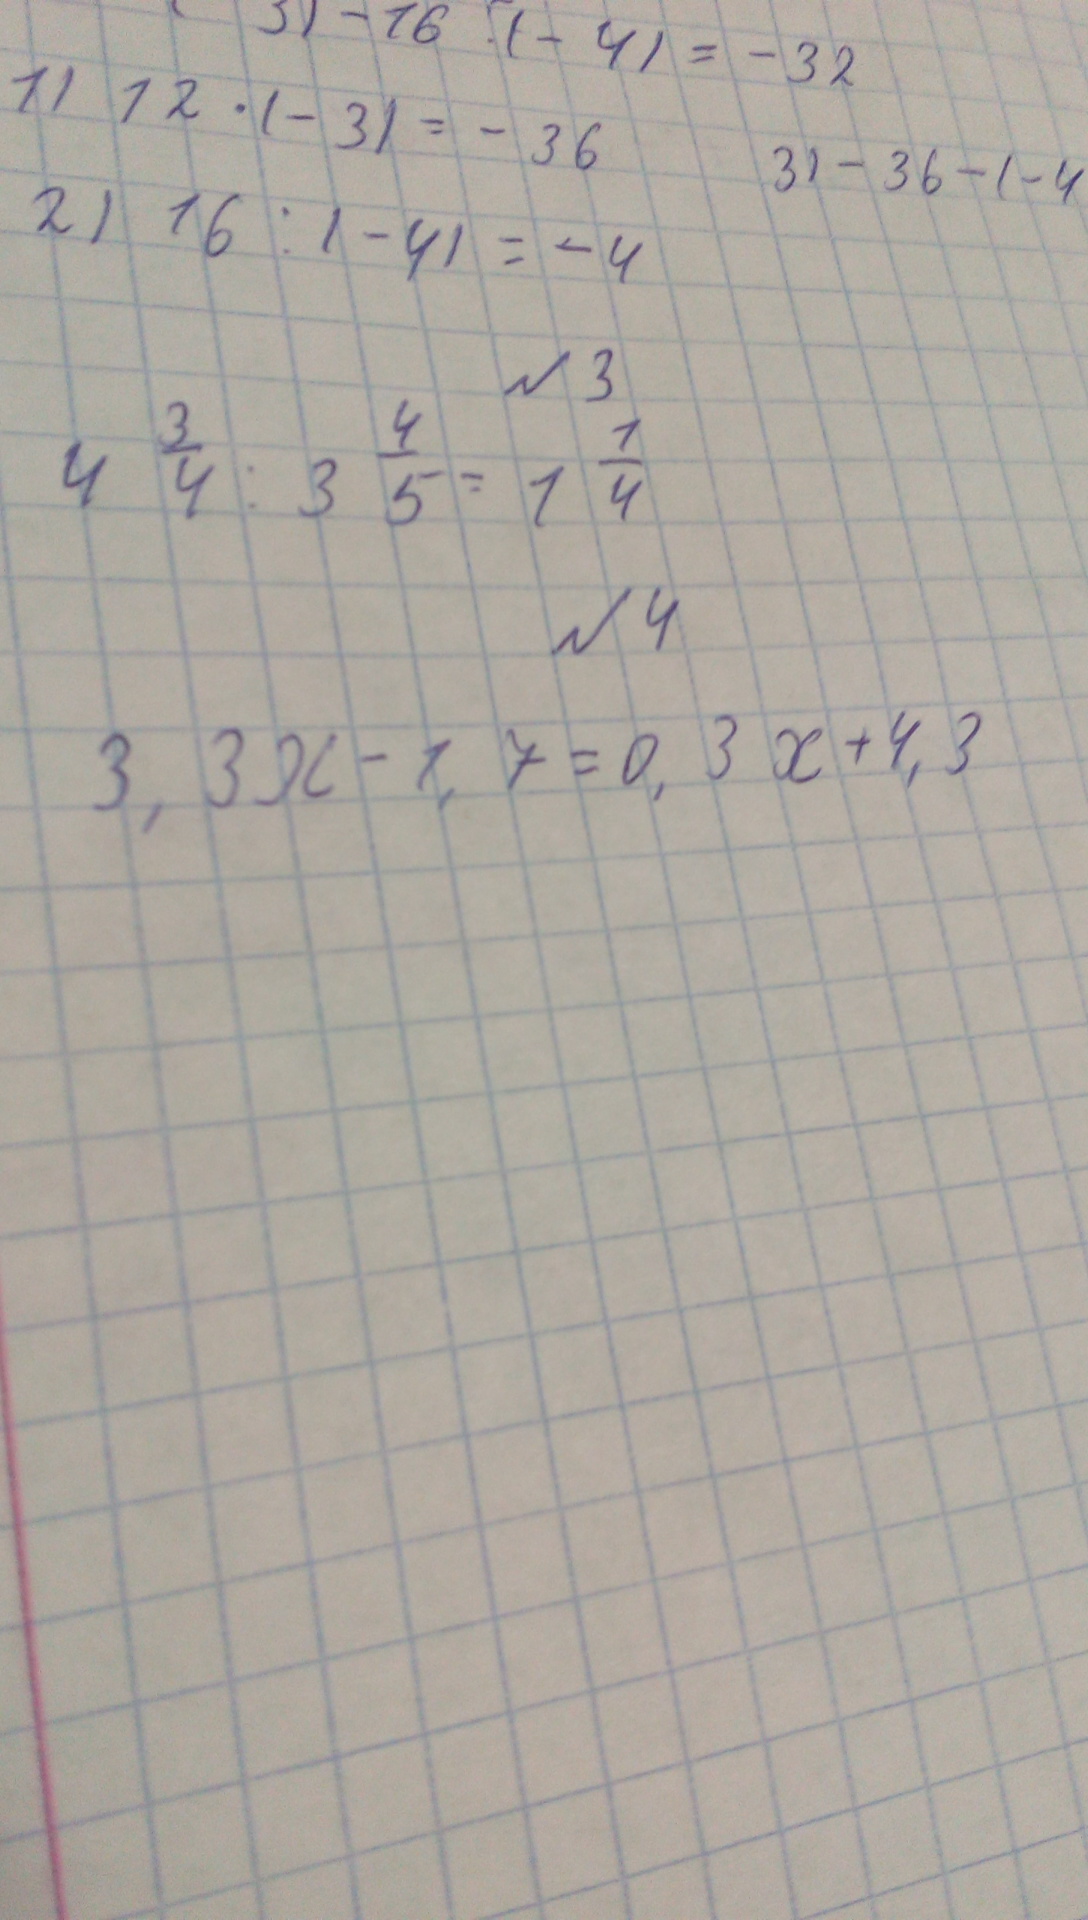 3) - 16 : (- 4) = - 32
1) 12 · (- 3) = - 36
3) - 36 - (- 4
2) 16 : (- 4) = - 4
№ 3
4 3/4 : 3 4/5 = 1 1/4
№ 4
3, 3x - 1, 7 = 0, 3 x + 4, 3